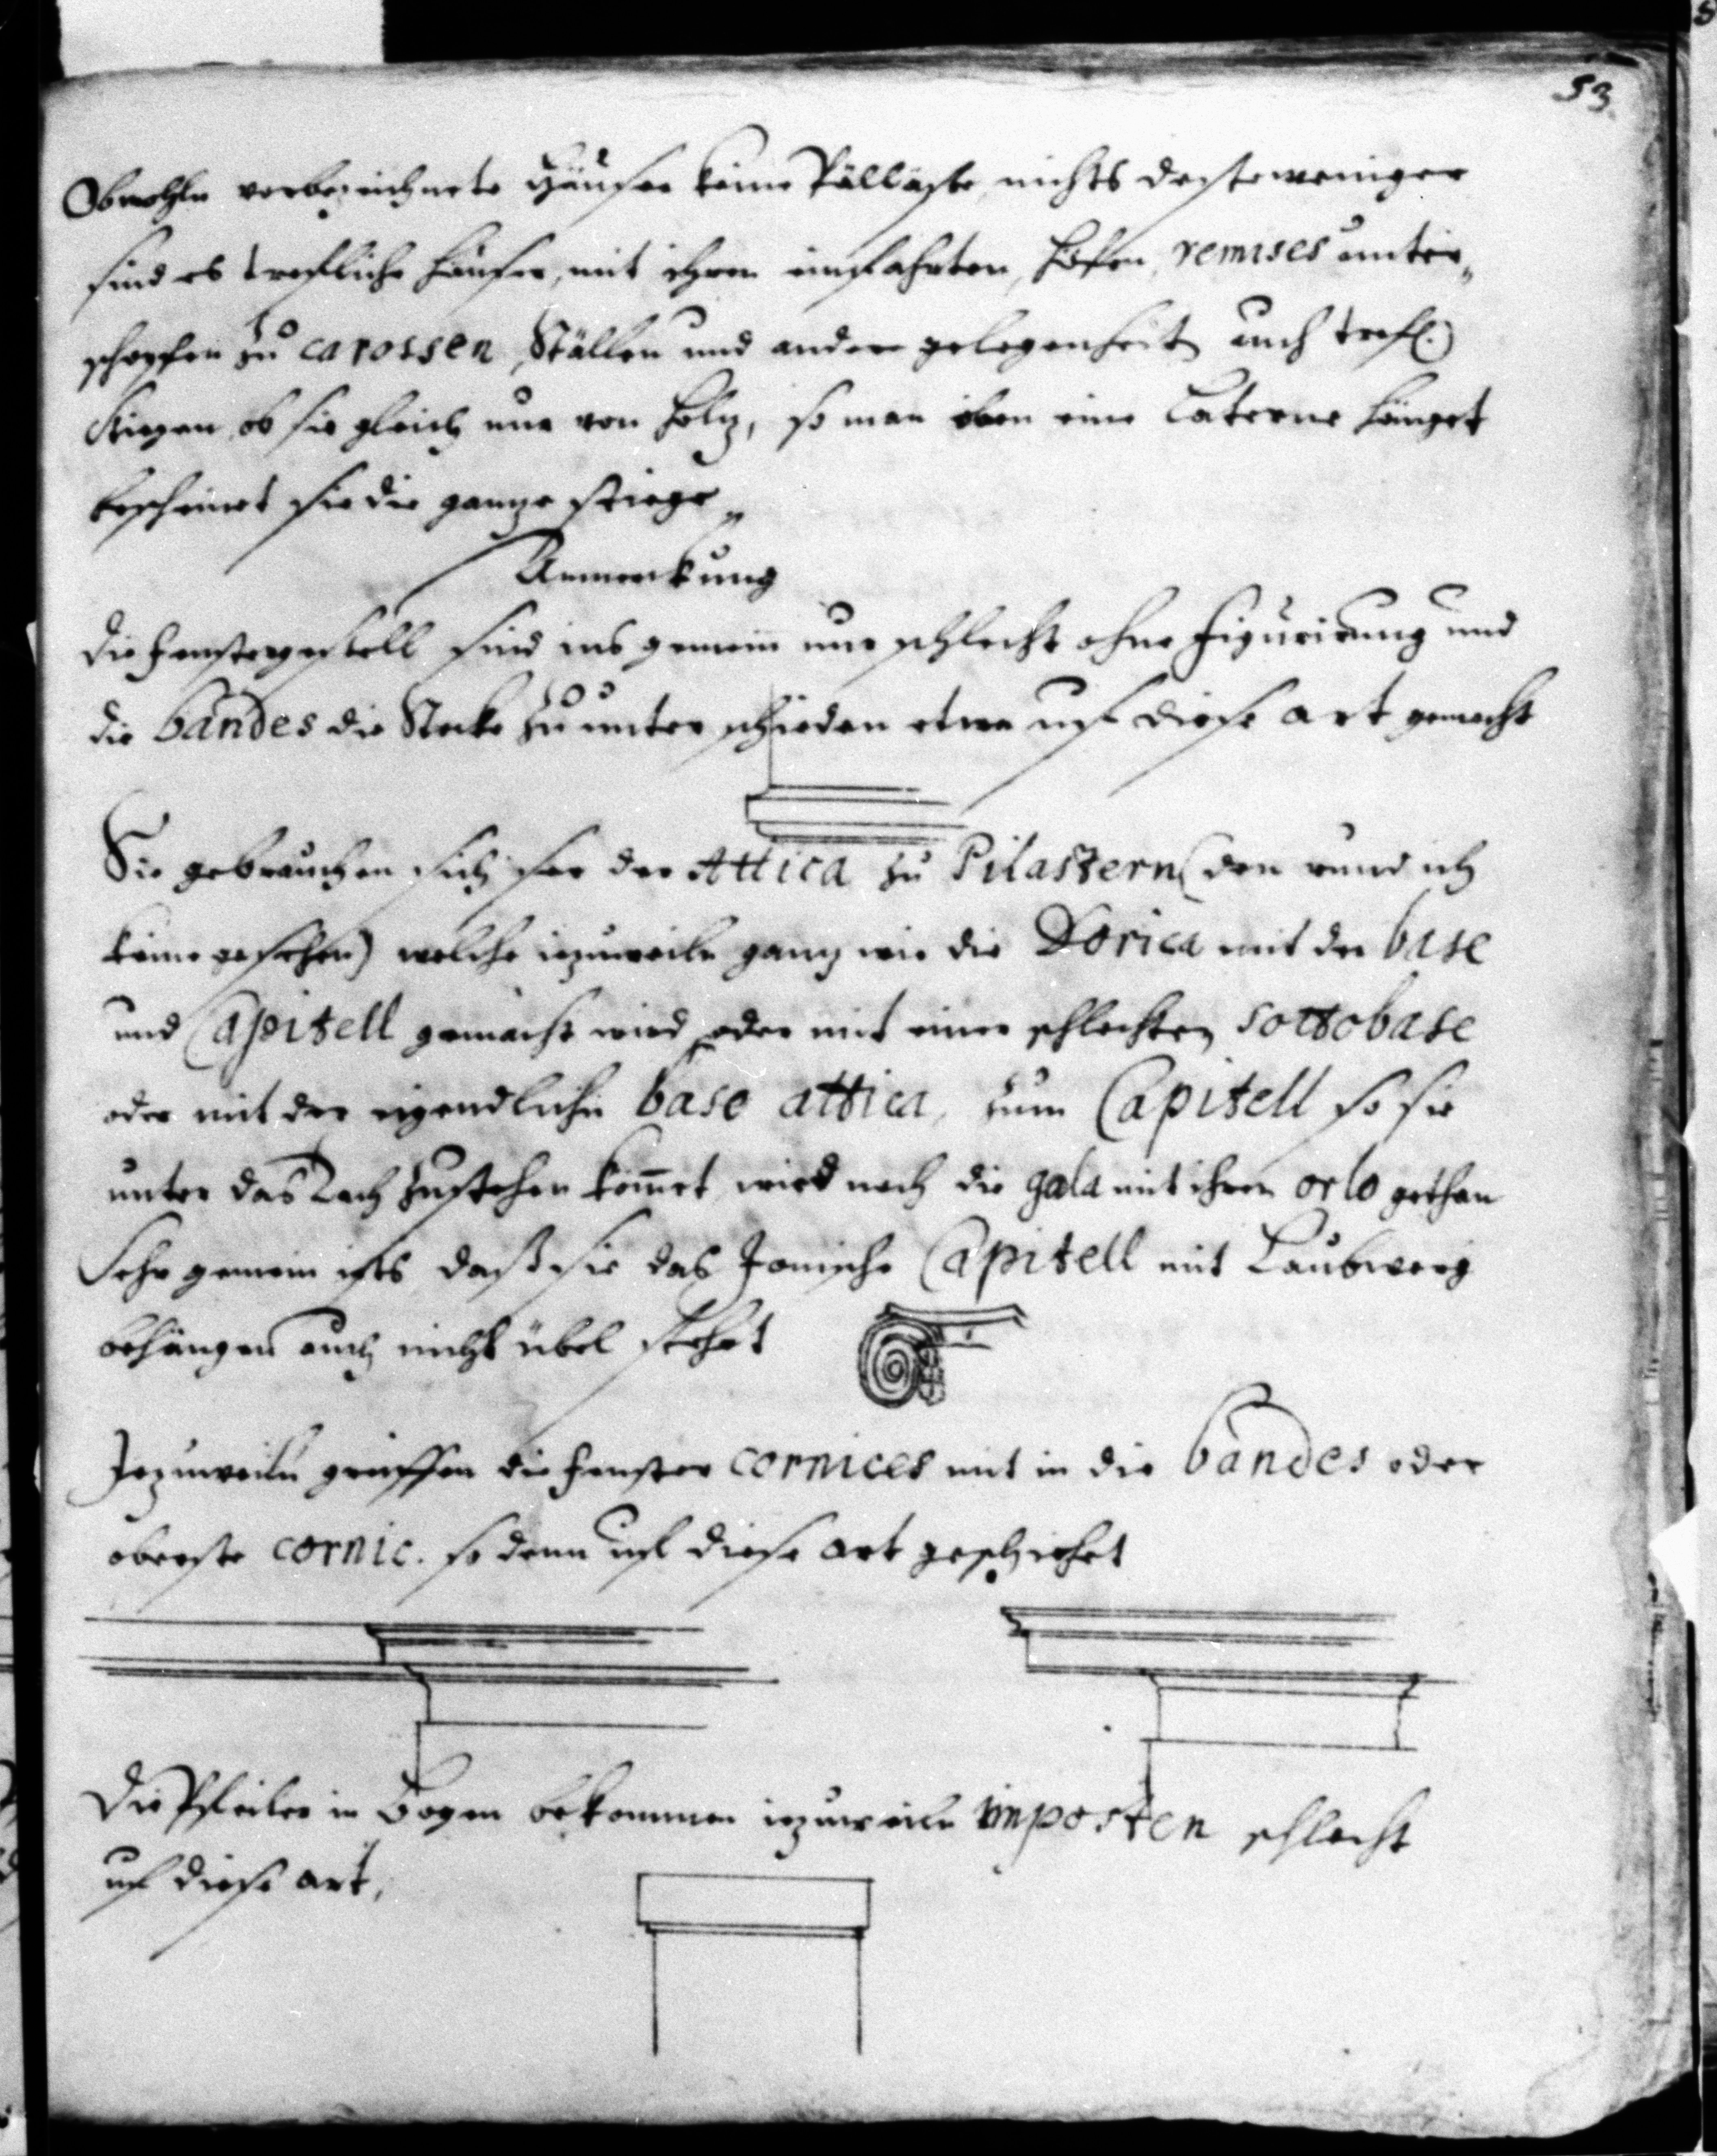 53
Obwohln verbezeichnete Häuser keine Palläste, nichts destoweniger
sind es trefliche häuser, mit ihren einfahrten, höfen, remises unter„
schopfen zu carossen, Ställen und andern gelegenheit auch trefl.
Stiegen, ob sie gleich nur von holz, so man oben eine Laterne hänget
bescheinet sie die ganze stiege„
Anmerckung
die fenstergestell sind ins gemein nur schlecht ohne figurirung und
die bandes die Stocke zu unterschieden etwa uf diese art gemacht
Sie gebrauchen sich ser der Attica zu Pilastern (den rund ich
keine gesehen) welche iezuweiln ganz wie die Dorica mit der base
und Capitell gemacht wird, oder mit einer schlechten sottobase
oder mit der eigendlichen base attica, zum Capitell so sie
unter das Dach zustehen kommet wird noch die gala mit ihren orlo gethan
Sehr gemein ists, daß sie das Jonische Capitell mit Laubwerg
behängen auch nicht übel stehet
Jezuweiln greiffen die fenster cornices mit in die bandes oder
oberste cornic. so denn uf diese art geschiehet
Die Pfeiler in Bogen bekommen iezuweiln imposten schlecht
uf diese art,